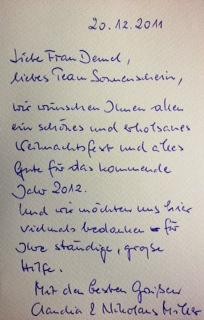 20.12.2011
Liebe Frau Demel,
liebes Team Sonnenschein,
wir wünschen Ihnen allen
ein schönes und erholsames
Weihnachtsfest und alles
Gute für das kommende
Jahr 2012.
Und wir möchten uns hier
vielmals bedanken für
Ihre ständige, große
Hilfe.
Mit den besten Grüßen
Claudia & Nikolaus